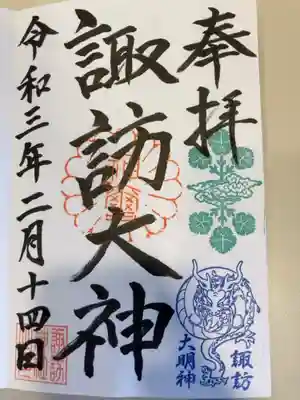 奉拝
諏訪大神
令和三年二月十四日
諏訪
大明神